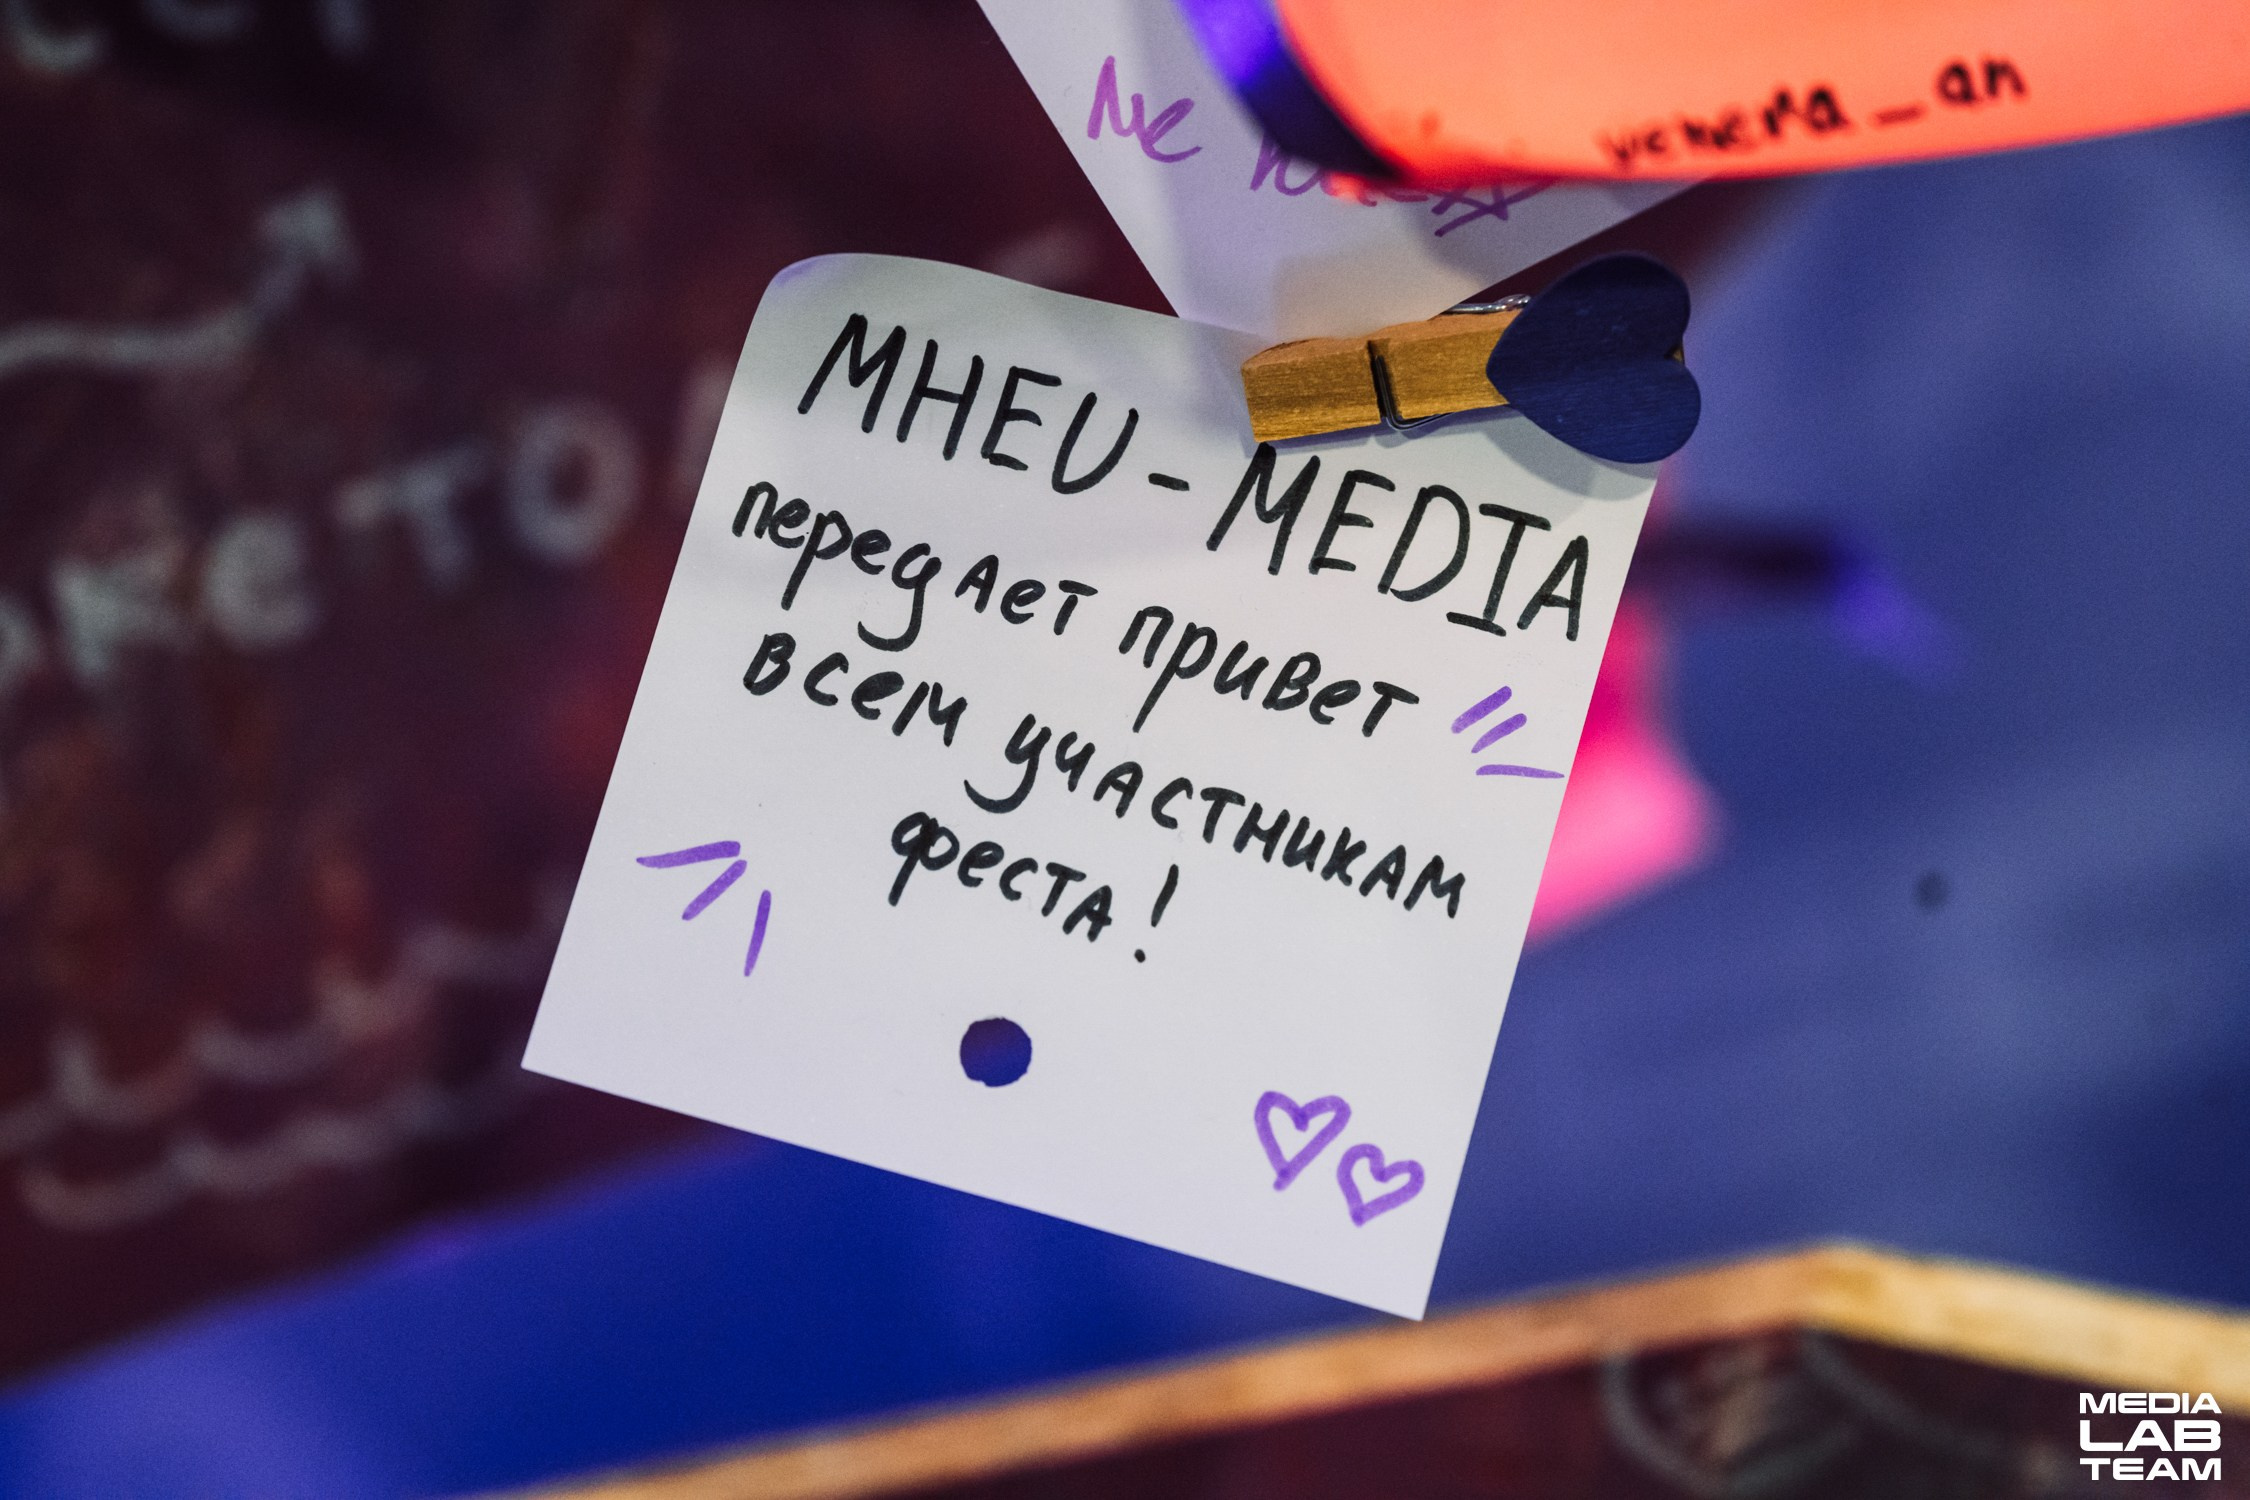 Не
venera_an
MHEU-MEDIA
передает привет
всем участникам
феста!
MEDIA
LAB
TEAM